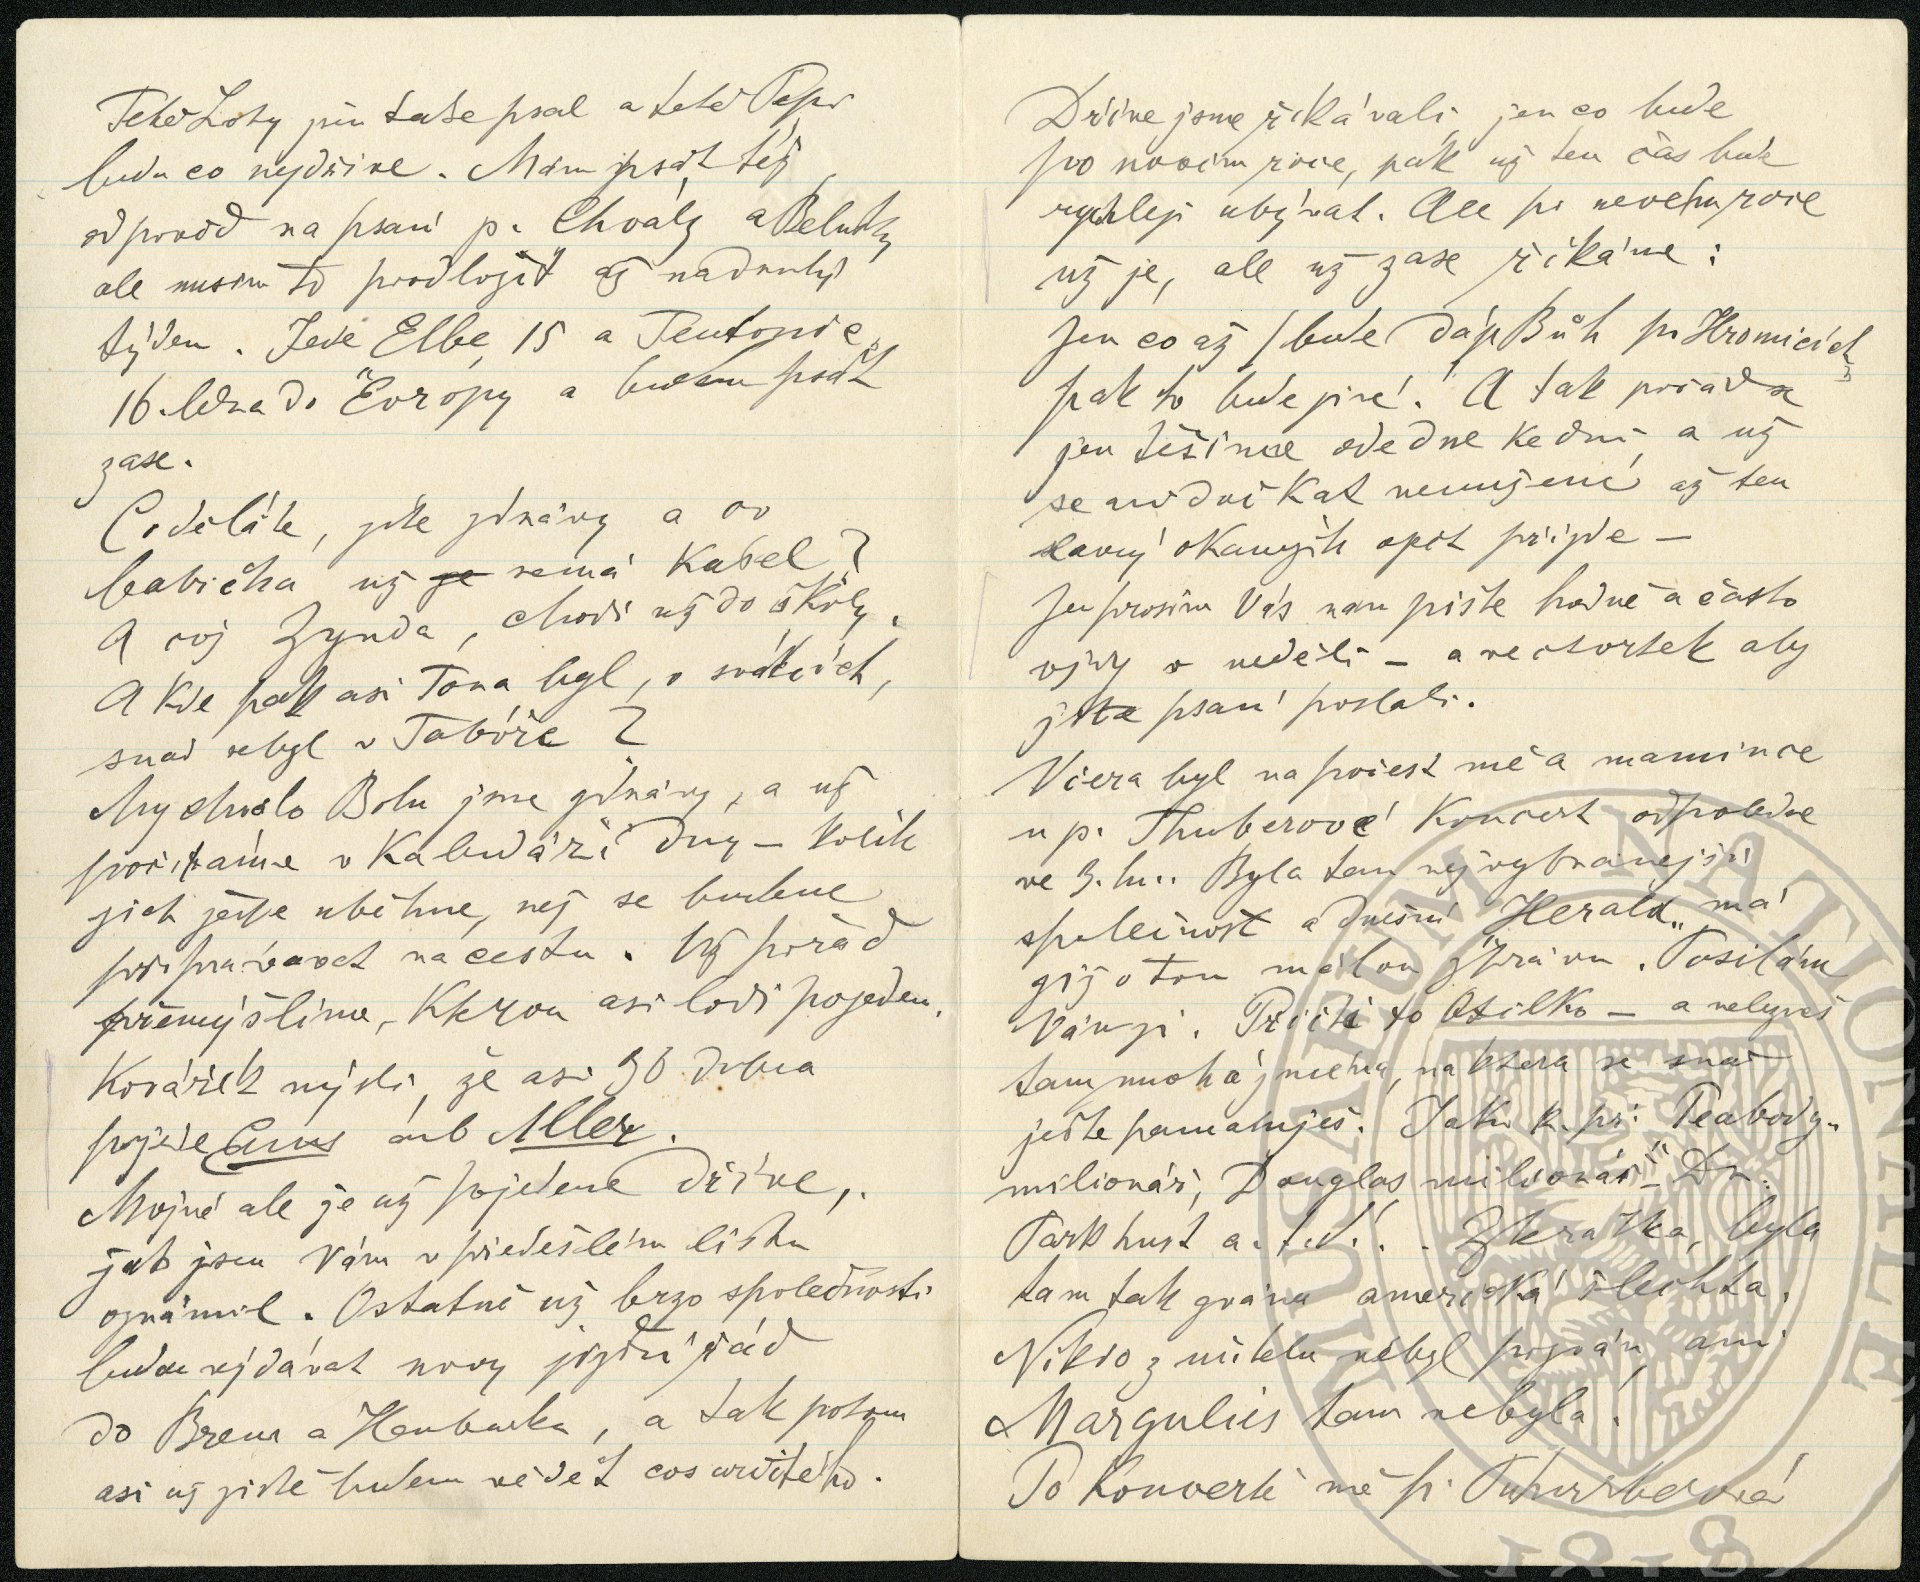 Tetě Loty jsem taše psal a tetě Pepi
budu co nejdříve. Mám psát též
odpověd na psaní p. Chvály a Belušky
ale musím to prodložit až na druhý
týden. Jede Elbe 15 a Teutonic
16. ledna do Evropy a budem psát
zase.
Co děláte, jste zdrávy a co
babička už nemá kašel?
A coj Zynda, chodí už do školy.
A kde pak asi Tona byl, o svátcích,
snad nebyl v Taboře?
My chvalo Bohu jsme zdrávy, a už
počitáme v kalendáři dny – kolik
jich ještě uběhne, než se budeme
připravovat na cestu. Už pořád
přemýšlíme, kterou asi lodi pojedem.
Kovářík myslí, že asi 30 dubna
pojede Ems anb Aller.
Možné ale je už pojedeme dříve,
jak jsem Vám v předešlém listu
oznámil. Ostatně už brzo společnosti
budou vydávat novy jízdní řád
do Brem a Hamburku, a tak potom
asi už jistě budem vědět cos určitého.
Dříve jsme říkávali jen co bude
po novém roce, pak už ten čas bude
rychleji ubývat. Ale po novém roce
už je, ale už zase říkáme:
Jen co až bude dá p Bůh po Hromicích
pak to bude jiné. A tak pořád se
jen těšíme ode dne ke dni a už
se ani dočkat nemůžeme až ten
slavný okamžik opět přijde –
Jen prosím Vás nám pište hodně a často
vždy v neděli – a ve čtvrtek aby
jste psaní poslali.
Včera byl na počest mě a mamince
u p. Thuberové koncert odpoledne
ve 3. h.. Byla tam nejvybranější
společnost a dnešní "Herald" má
již o tom malou zprávu. Posílám
Vám ji. Přečti to Otilko – a nelzveš
tam mnohá jména, na která se snad
ještě pamatuješ. Jako k. př: Peabody
milionář, Douglas milionář – Dr.
Parkhust a. t. d. . . Zkrátka, byla
tam tak zvána americká šlechta.
Nikdo z učitelu nebyl pozván, ani
Margulies tam nebyla.
Po koncertě mě p. Thurberová